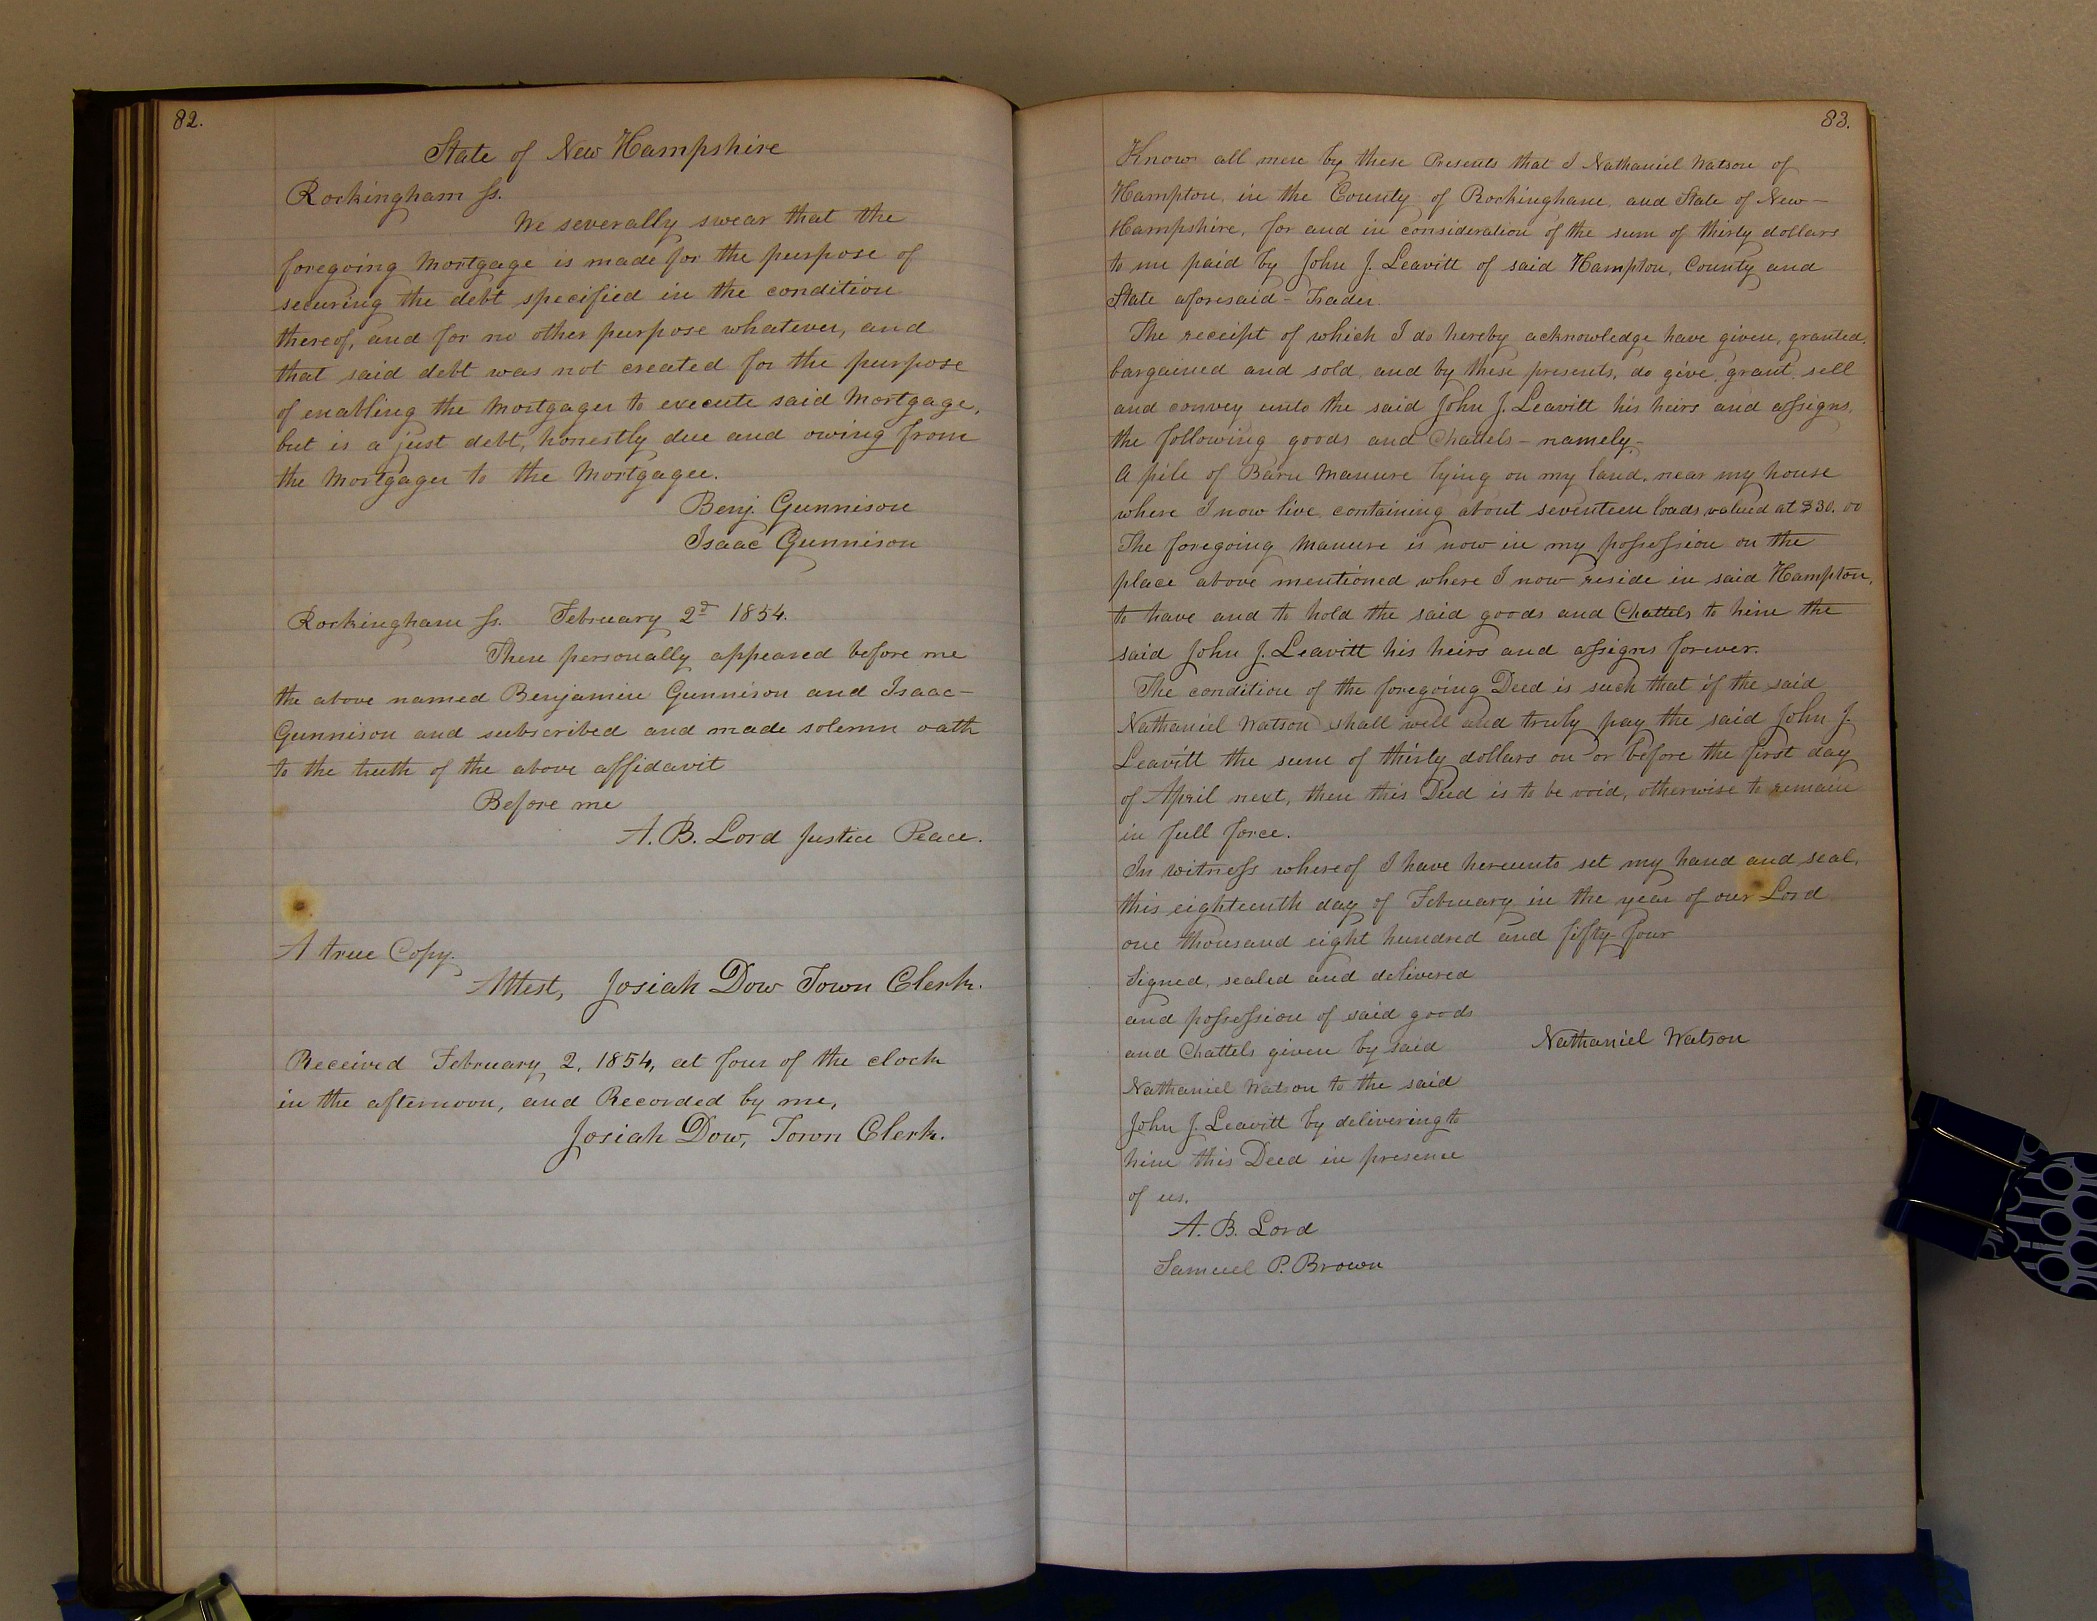 82.
State of New Hampshire
Rockingham ss.
We severally swear that the
foregoing Mortgage is made for the purpose of
securing the debt specified in the condition
thereof, and for no other purpose whatever, and
that said debt was not created for the purpose
of enabling the Mortgager to execute said Mortgage,
but is a just debt, honestly due and owing from
the Mortgager to the Mortgagee.
Benj. Gunnison
Isaac Gunnison
Rockingham ss. February 2d 1854.
Then personally appeared before me
the above named Benjamin Gunnison and Isaac-
Gunnison and subscribed and made solemn oath
to the truth of the above affidavit
Before me
A. B. Lord Justice Peace.
A true Copy.
Attest, Josiah Dow Town Clerk.
Received February 2, 1854, at four of the clock
in the afternoon, and Recorded by me,
Josiah Dow, Town Clerk.
83.
Know all men by these Presents that I Nathaniel Watson of
Hampton, in the County of Rockingham, and State of New-
Hampshire, for and in consideration of the sum of thirty dollars
to me paid by John J. Leavitt of said Hampton, County and
State aforesaid - Trader.
The receipt of which I do hereby acknowledge have given, granted,
bargained and sold, and by these presents, do give, grant, sell
and convey unto the said John J. Leavitt his heirs and assigns,
the following goods and Chattels - namely-
A pile of Barn Manure lying on my land, near my house
where I now live, containing about seventeen loads valued at $30.00
The foregoing Manure is now in my possession on the
place above mentioned where I now reside in said Hampton,
to have and to hold the said goods and Chattels to him the
said John J. Leavitt his heirs and assigns forever.
The condition of the foregoing Deed is such that if the said
Nathaniel Watson shall well and truly pay the said John J.
Leavitt the sum of thirty dollars on or before the first day
of April next, then this Deed is to be void, otherwise to remain
in full force.
In witness whereof I have hereunto set my hand and seal,
this eighteenth day of February in the year of our Lord
one thousand eight hundred and fifty-four
Signed, sealed and delivered
and possession of said goods
and Chattels given by said
Nathaniel Watson
Nathaniel Watson to the said
John J. Leavitt by delivering to
him this Deed in presence
of us.
A. B. Lord
Samuel P. Brown